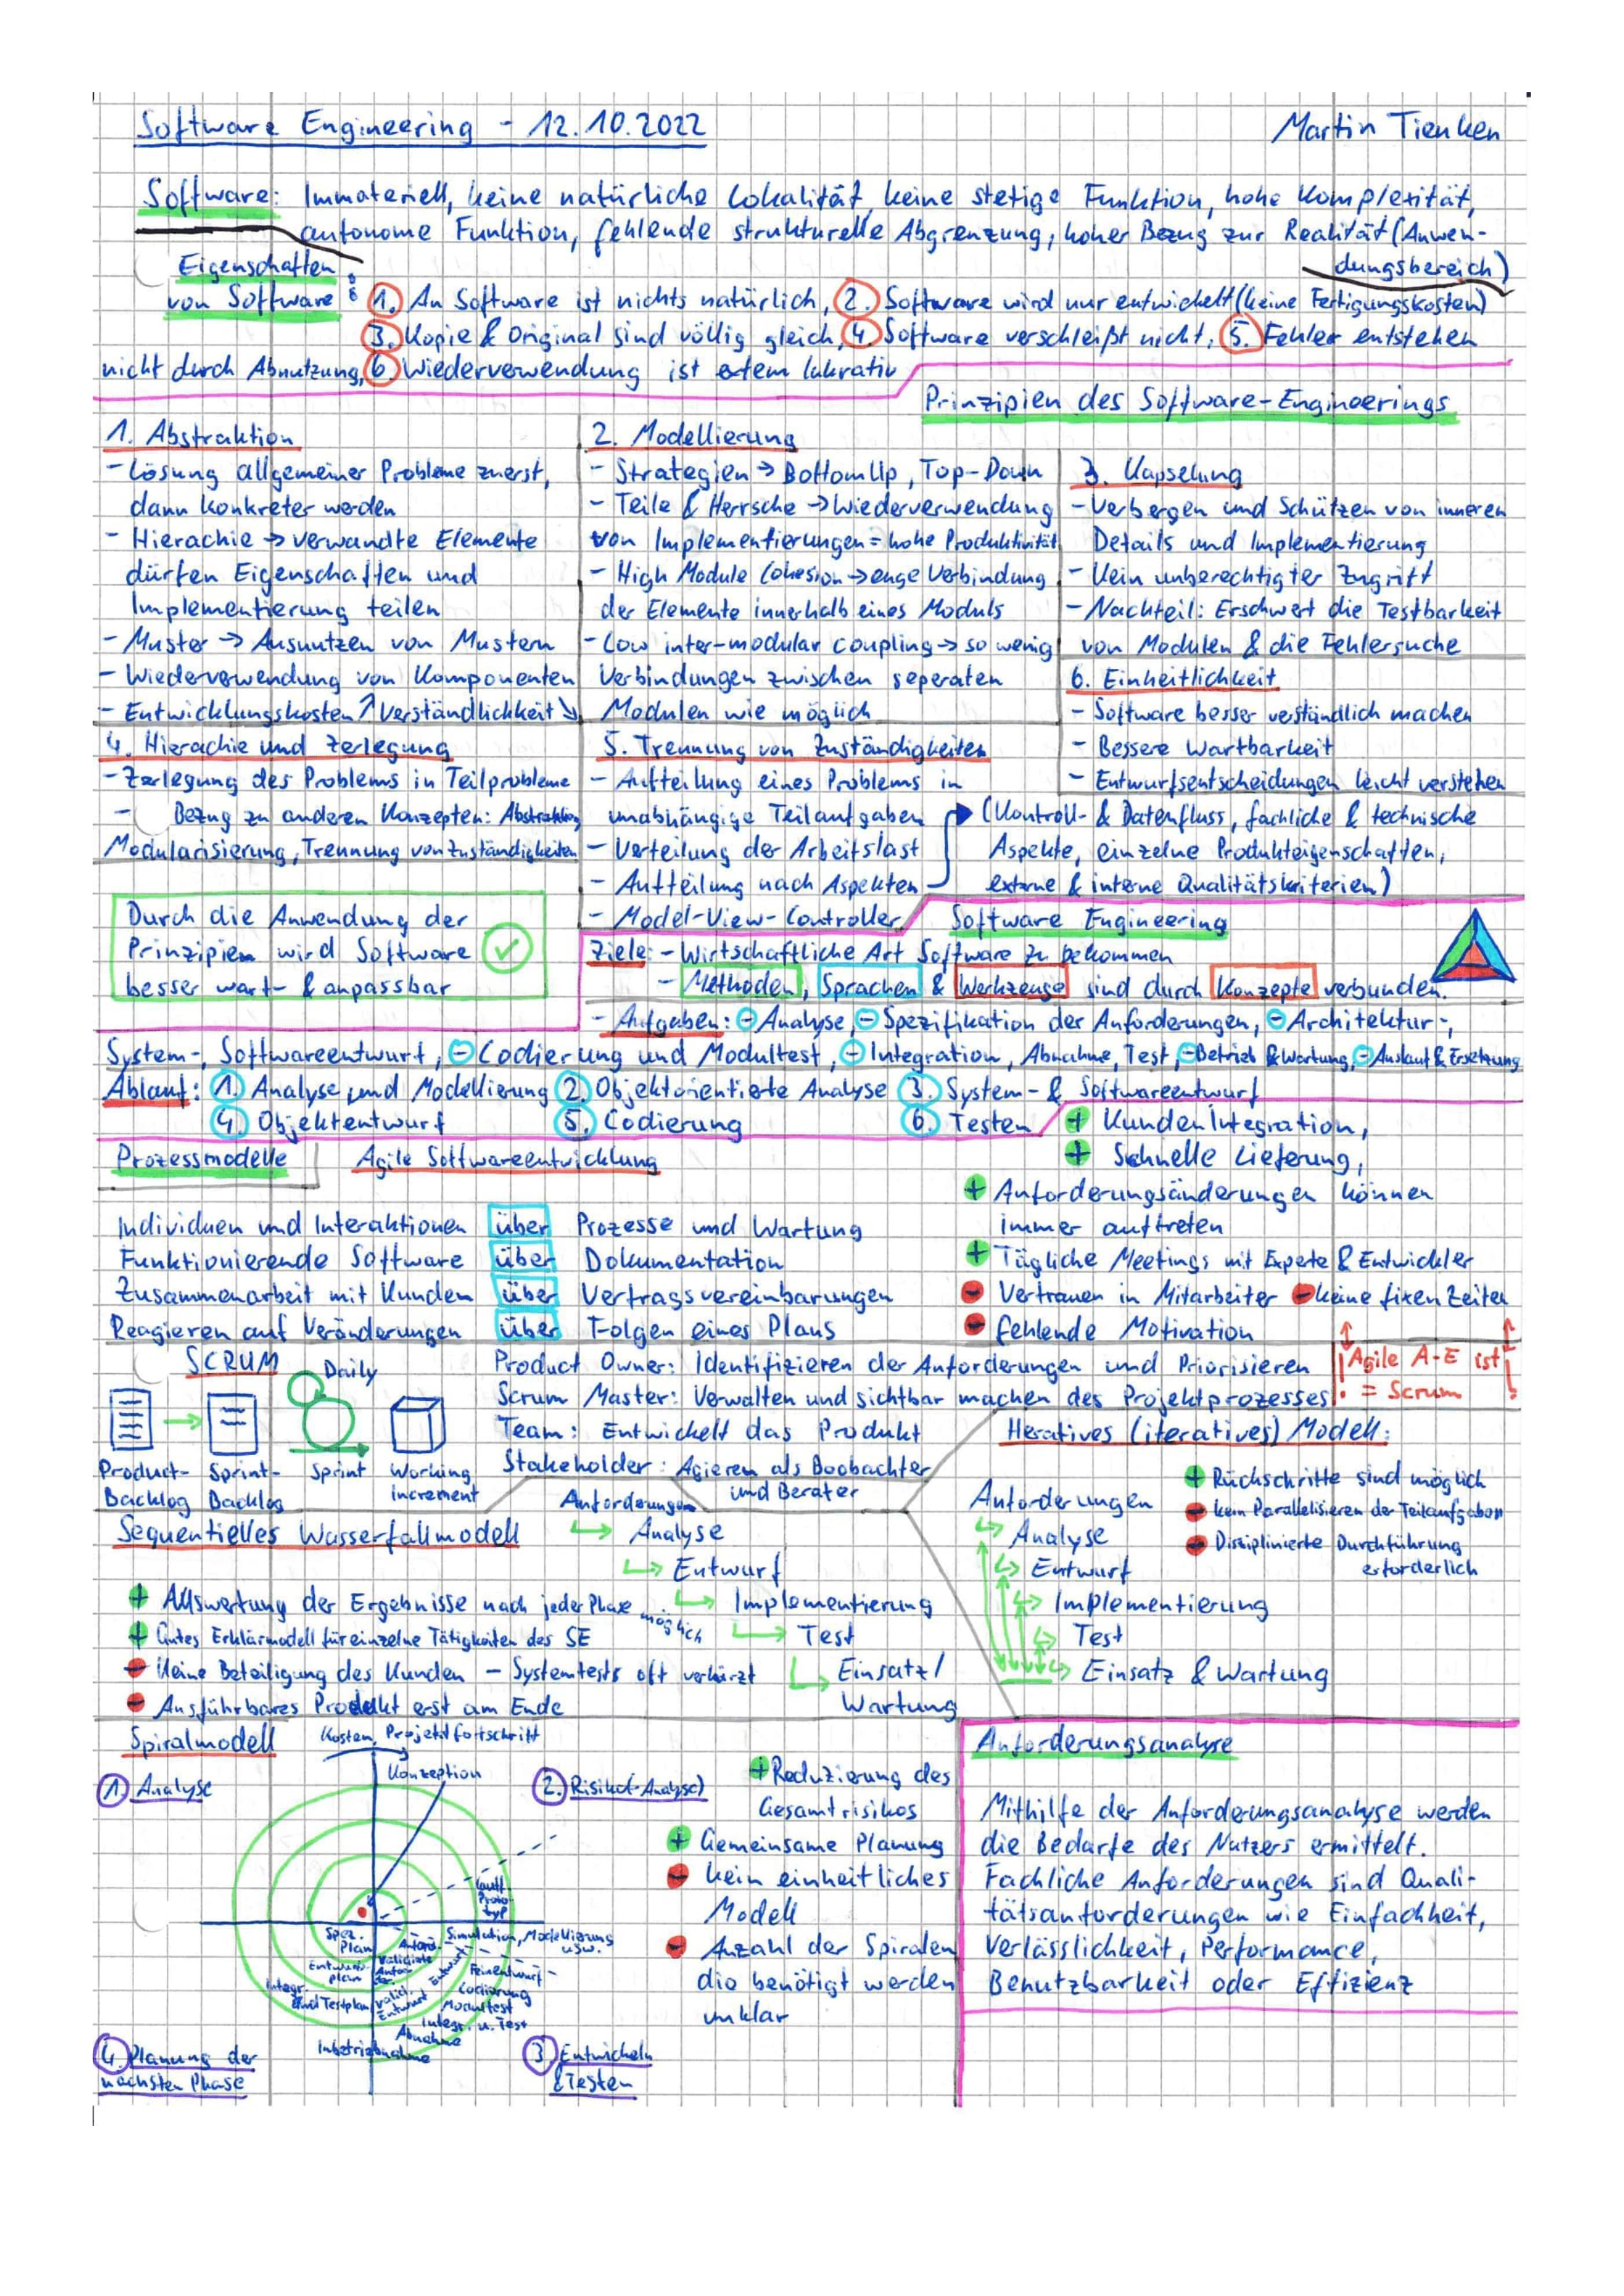 Software Engineering - 12.10.2022
Martin Tienken
Software: Immateriell, keine natürliche Lokalität, keine stetige Funktion, hohe Komplexität,
autonome Funktion, fehlende strukturelle Abgrenzung, hoher Bezug zur Realität (Anwen-
dungsbereich)
Eigenschaften
von Software: 1. An Software ist nichts natürlich, 2. Software wird nur entwickelt (keine Fertigungskosten)
3. Kopie & Original sind völlig gleich, 4. Software verschleißt nicht, 5. Fehler entstehen
nicht durch Abnutzung, 6. Wiederverwendung ist extem lukrativ
Prinzipien des Software-Engineerings
1. Abstraktion
- Lösung allgemeiner Probleme zuerst,
dann konkreter werden
- Hierachie → verwandte Elemente
dürfen Eigenschaften und
Implementierung teilen
- Muster → Ausnutzen von Mustern
- Wiederverwendung von Komponenten
- Entwicklungskosten ↗ Verständlichkeit ↘
2. Modellierung
- Strategien → BottomUp, Top-Down
- Teile & Herrsche → Wiederverwendung
von Implementierungen = hohe Produktivität
- High Module Cohesion → enge Verbindung
der Elemente innerhalb eines Moduls
- Low inter-modular coupling → so wenig
Verbindungen zwischen seperaten
Modulen wie möglich
3. Kapselung
- Verbergen und Schützen von inneren
Details und Implementierung
- Kein unberechtigter Zugriff
- Nachteil: Erschwert die Testbarkeit
von Modulen & die Fehlersuche
4. Hierachie und Zerlegung
- Zerlegung des Problems in Teilprobleme
- Bezug zu anderen Konzepten: Abstraktion
Modularisierung, Trennung von Zuständigkeiten
5. Trennung von Zuständigkeiten
- Aufteilung eines Problems in
unabhängige Teilaufgaben
- Verteilung der Arbeitslast
- Aufteilung nach Aspekten
- Model-View-Controller
(Kontroll- & Datenfluss, fachliche & technische
Aspekte, einzelne Produkteigenschaften,
externe & interne Qualitätskriterien)
6. Einheitlichkeit
- Software besser verständlich machen
- Bessere Wartbarkeit
- Entwurfsentscheidungen leicht verstehen
Durch die Anwendung der
Prinzipien wird Software
besser wart- & anpassbar
Software Engineering
Ziele: - Wirtschaftliche Art Software zu bekommen
- Methoden, Sprachen & Werkzeuge sind durch Konzepte verbunden.
- Aufgaben: - Analyse, - Spezifikation der Anforderungen, - Architektur-,
System-, Softwareentwurf, - Codierung und Modultest, - Integration, Abnahme, Test, - Betrieb & Wartung, - Auslauf & Ersetzung
Ablauf: 1. Analyse und Modellierung 2. Objektorientierte Analyse 3. System- & Softwareentwurf
4. Objektentwurf 5. Codierung 6. Testen
Prozessmodelle
Agile Softwareentwicklung
Individuen und Interaktionen über Prozesse und Wartung
Funktionierende Software über Dokumentation
Zusammenarbeit mit Kunden über Vertragsvereinbarungen
Reagieren auf Veränderungen über Folgen eines Plans
+ KundenIntegration,
+ Schnelle Lieferung,
+ Anforderungsänderungen können
immer auftreten
+ Tägliche Meetings mit Experte & Entwickler
- Vertrauen in Mitarbeiter - keine fixen Zeiten
- fehlende Motivation
SCRUM
Daily
Product-
Backlog
Sprint-
Backlog
Sprint
Working
increment
Product Owner: Identifizieren der Anforderungen und Priorisieren
Scrum Master: Verwalten und sichtbar machen des Projektprozesses
Team: Entwickelt das Produkt
Stakeholder: Agieren als Boobachter
und Berater
! Agile A-E ist !
= Scrum
Sequentielles Wasserfallmodell
Anforderungen
Analyse
Entwurf
Implementierung
Test
Einsatz/
Wartung
+ Auswertung der Ergebnisse nach jeder Phase möglich
+ Gutes Erklärmodell für einzelne Tätigkeiten des SE
- Keine Beteiligung des Kunden - Systemtests oft verkürzt
- Ausführbares Produkt erst am Ende
Iteratives (iteratives) Modell:
Anforderungen
Analyse
Entwurf
Implementierung
Test
Einsatz & Wartung
+ Rückschritte sind möglich
- kein Parallelisieren der Teilaufgaben
- Disziplinierte Durchführung
erforderlich
Spiralmodell
Kosten, Projektfortschritt
Konzeption
1. Analyse
2. Risiko(-Analyse)
Lauff.
Proto-
typ
Simulation, Modellierung
usw.
Spez.
Plan
Anford.
Entwurfs-
plan
Validierte
Anfor-
der.
Entwurf
Feinentwurf-
Integr.
und Testplan
Valid.
Entwurf
Codierung
Modultest
Integr. u. Test
Abnahme
Inbetriebnahme
4. Planung der
nächsten Phase
3. Entwickeln
& Testen
+ Reduzierung des
Gesamtrisikos
+ Gemeinsame Planung
- kein einheitliches
Modell
- Anzahl der Spiralen
die benötigt werden
unklar
Anforderungsanalyse
Mithilfe der Anforderungsanalyse werden
die Bedarfe des Nutzers ermittelt.
Fachliche Anforderungen sind Quali-
tätsanforderungen wie Einfachheit,
Verlässlichkeit, Performance,
Benutzbarkeit oder Effizienz